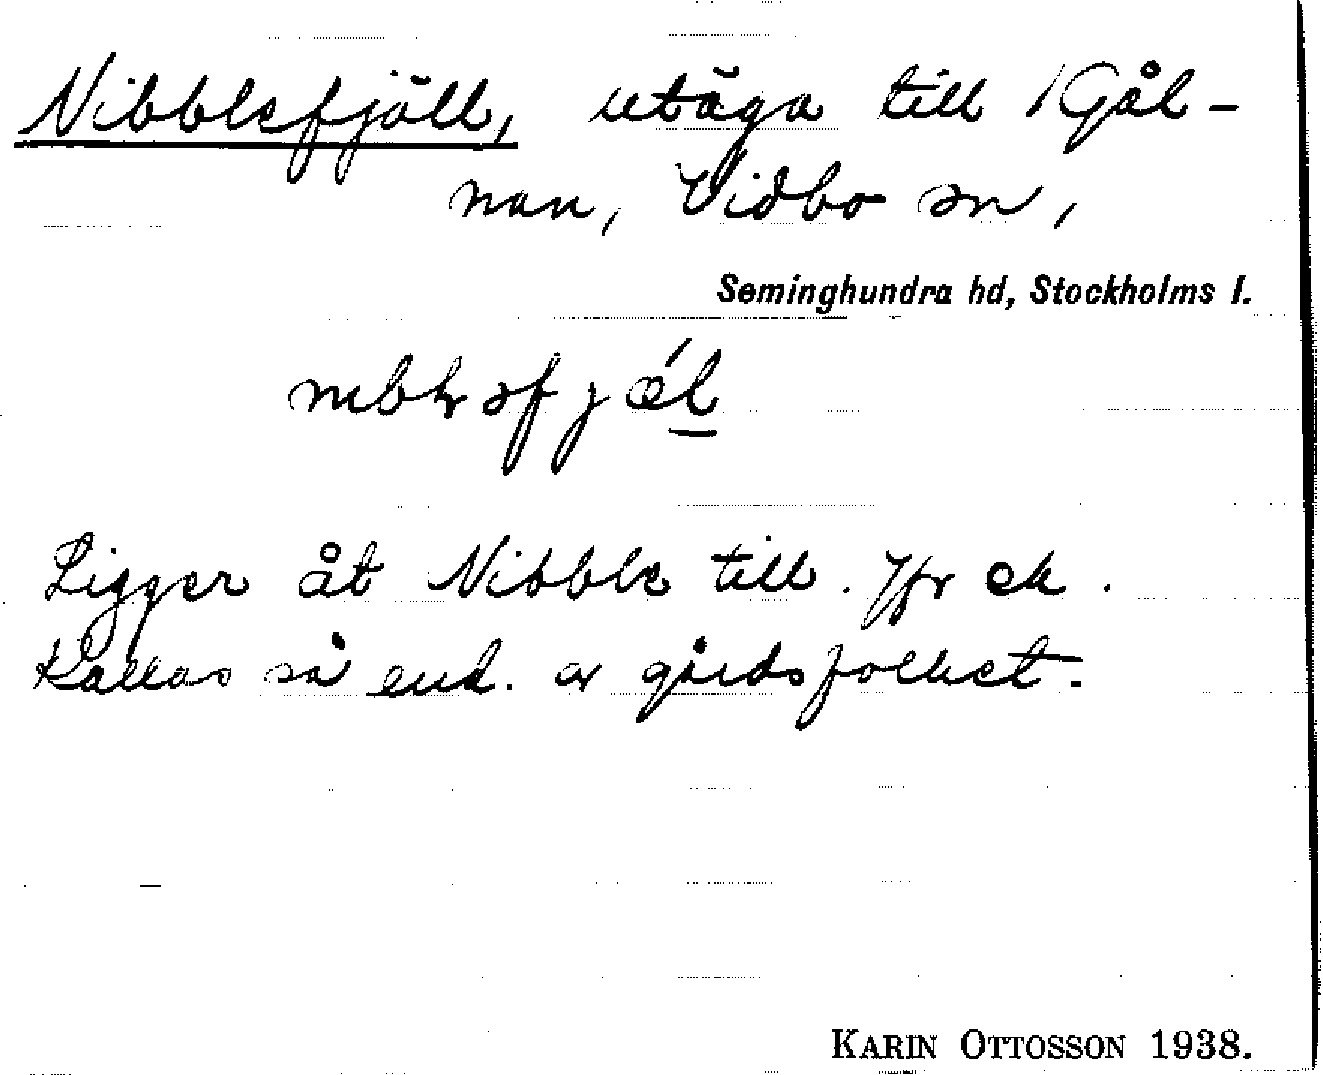 Nibblefjäll, utäga till 1 Gål-
nan, Vidbo sn,
Seminghundra hd, Stockholms l.
Ligger åt Nibble till. Jfr ek.
Kallas så end. av gårdsfolket.
KARIN OTTOSSON 1938.